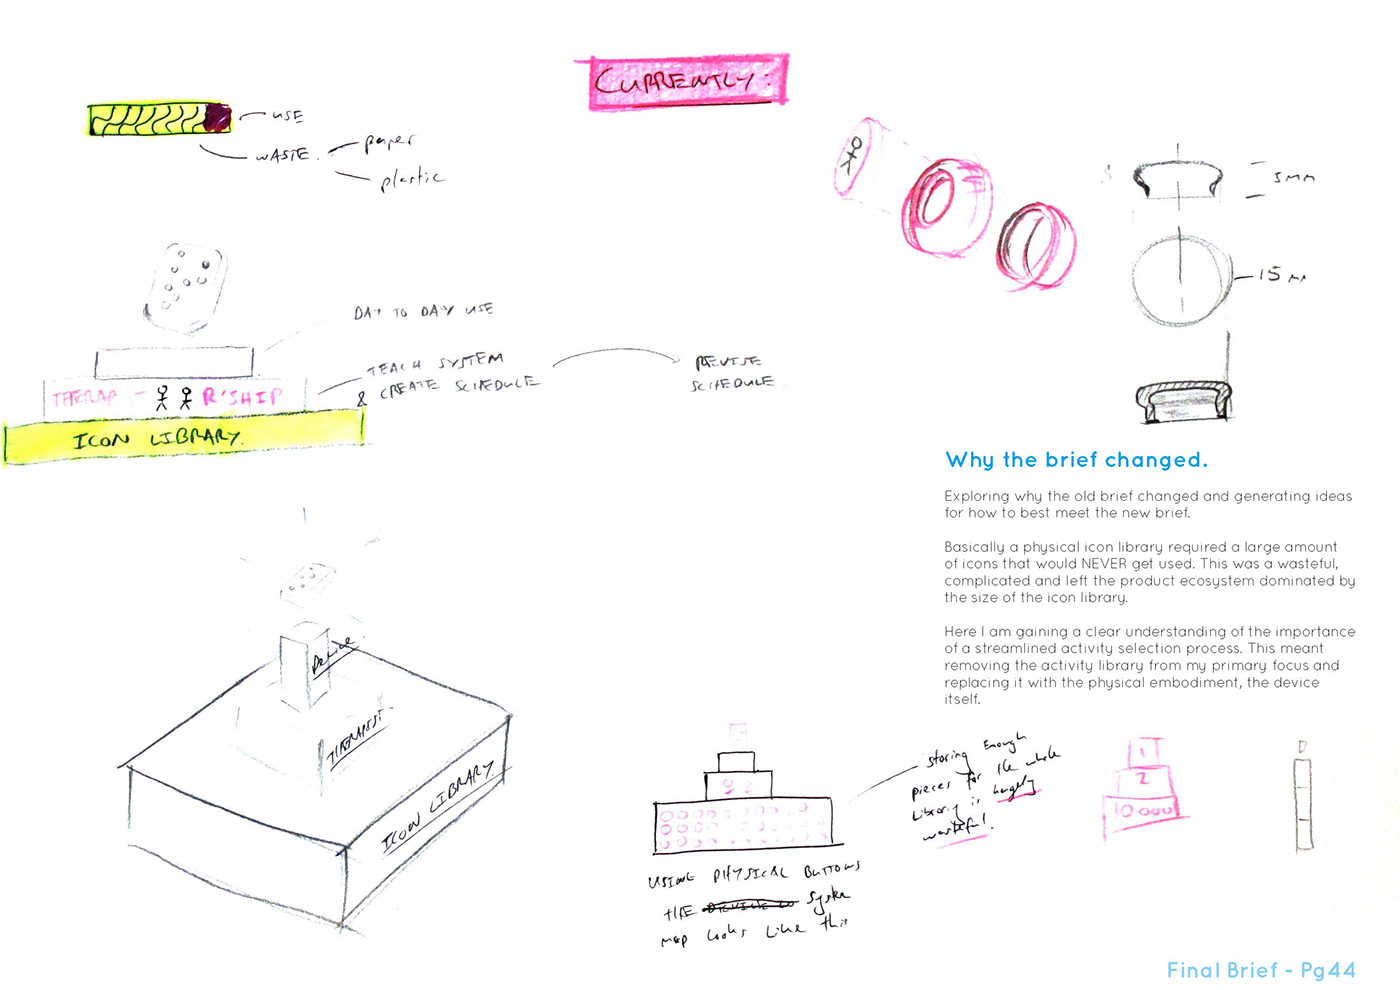 CURRENTLY:
USE
WASTE.
paper
plastic
5mm
15mm
DAY TO DAY USE
TEACH SYSTEM
& CREATE SCHEDULE
REVISE
SCHEDULE
THERAP - R'SHIP
ICON LIBRARY.
Why the brief changed.
Exploring why the old brief changed and generating ideas
for how to best meet the new brief.
Basically a physical icon library required a large amount
of icons that would NEVER get used. This was a wasteful,
complicated and left the product ecosystem dominated by
the size of the icon library.
Here I am gaining a clear understanding of the importance
of a streamlined activity selection process. This meant
removing the activity library from my primary focus and
replacing it with the physical embodiment, the device
itself.
Device
THERAPIST
ICON LIBRARY
storing enough
pieces for the whole
library is hugely
wasteful.
1
2
10 000
USING PHYSICAL BUTTONS
THE system
map looks like this
Final Brief - Pg44